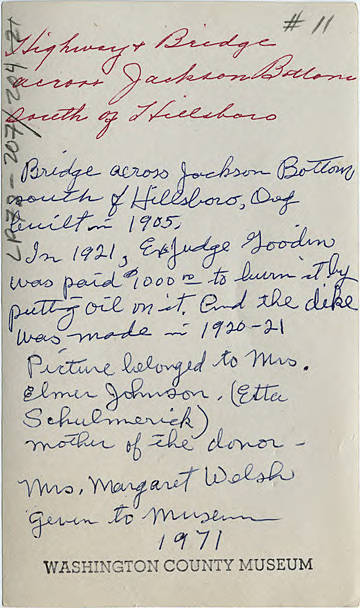 # 11
Highway & Bridge
across Jackson Bottom
south of Hillsboro
Bridge across Jackson Bottom
south of Hillsboro, Oreg
built in 1905.
In 1921, Ex Judge Goodin
was paid $1000.00 to burn it by
putting oil on it. And the dike
was made in 1920-21
Picture belonged to Mrs.
Elmer Johnson. (Etta
Schulmerich)
mother of the donor -
Mrs. Margaret Welsh
Given to Museum
1971
WASHINGTON COUNTY MUSEUM